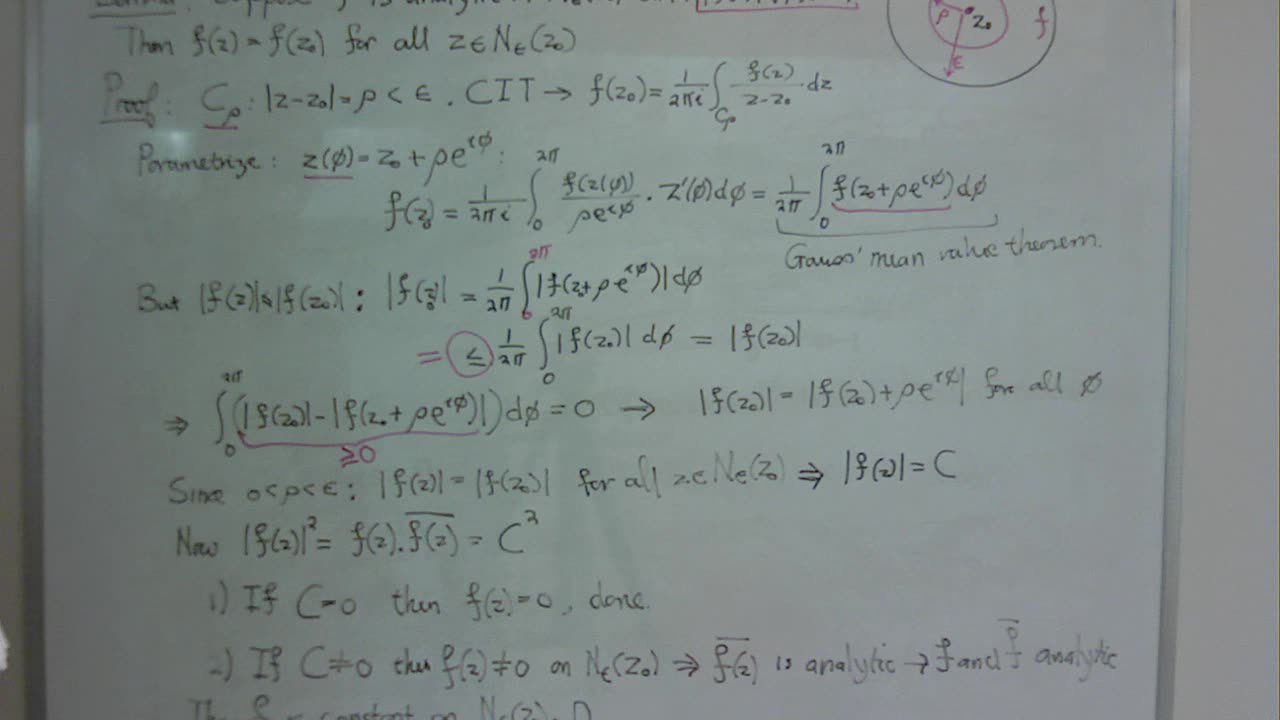 Lemma: Suppose f is analytic
ρ z₀ f
ε
Then f(z) = f(z₀) for all z∈N_ε(z₀)
Proof: C_ρ: |z-z₀| = ρ < ε. CIT → f(z₀) = 1/2πi ∫_{C_ρ} f(z)/(z-z₀) · dz
Parametrize: z(φ) = z₀ + ρe^{iφ}:
f(z₀) = 1/2πi ∫₀^{2π} f(z(φ))/ρe^{iφ} · z'(φ)dφ = 1/2π ∫₀^{2π} f(z₀+ρe^{iφ})dφ
Gauss' mean value theorem.
But |f(z)|≤|f(z₀)|: |f(z₀)| = 1/2π ∫₀^{2π} |f(z₀+ρe^{iφ})|dφ
= ≤ 1/2π ∫₀^{2π} |f(z₀)| dφ = |f(z₀)|
⇒ ∫₀^{2π} (|f(z₀)|-|f(z₀+ρe^{iφ})|)dφ = 0 → |f(z₀)| = |f(z₀)+ρe^{iφ}| for all φ
≥0
Since 0<ρ<ε: |f(z)| = |f(z₀)| for all z∈N_ε(z₀) ⇒ |f(z)| = C
Now |f(z)|² = f(z).\overline{f(z)} = C²
1) If C=0 then f(z)=0, done.
2) If C≠0 then f(z)≠0 on N_ε(z₀) ⇒ \overline{f(z)} is analytic → f and \overline{f} analytic
constant on N_ε(z₀). □